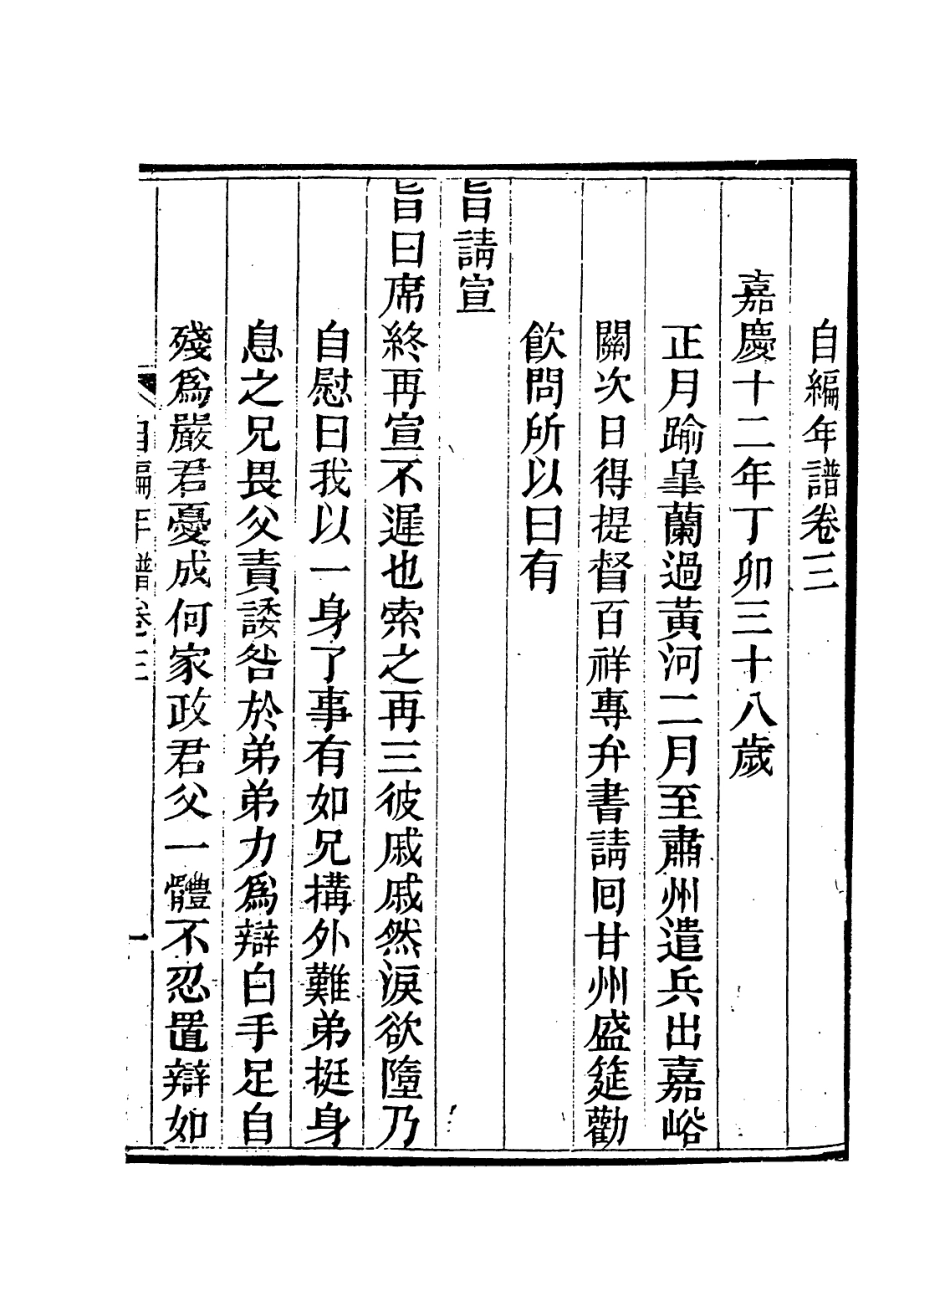 自編年譜卷三
嘉慶十二年丁卯三十八歲
正月踰臯蘭過黃河二月至肅州遣兵出嘉峪
關次日得提督百祥專弁書請回甘州盛筵勸
飮問所以曰有
旨請宣
旨曰席終再宣不遲也索之再三彼戚戚然淚欲墮乃
自慰曰我以一身了事有如兄搆外難弟挺身
息之兄畏父責諉咎於弟弟力爲辯白手足自
殘爲嚴君憂成何家政君父一體不忍置辯如
自編年譜卷三
一